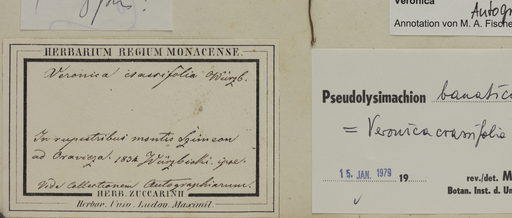 HERBARIUM REGIUM MONACENSE.
Veronica crassifolia Würzb.
In rupestribus montis Szimeon
ad Oravicza. 1834. Würzbieski.
Vide Collectionem Autographarum.
HERB. ZUCCARINII
Herbar. Univ. Ludov. Maximil.
Veronica
Autogr
Annotation von M. A. Fische
Pseudolysimachion banatic
= Veronica crassifolia
15. JAN. 1979 19
rev./det. M
Botan. Inst. d. Un